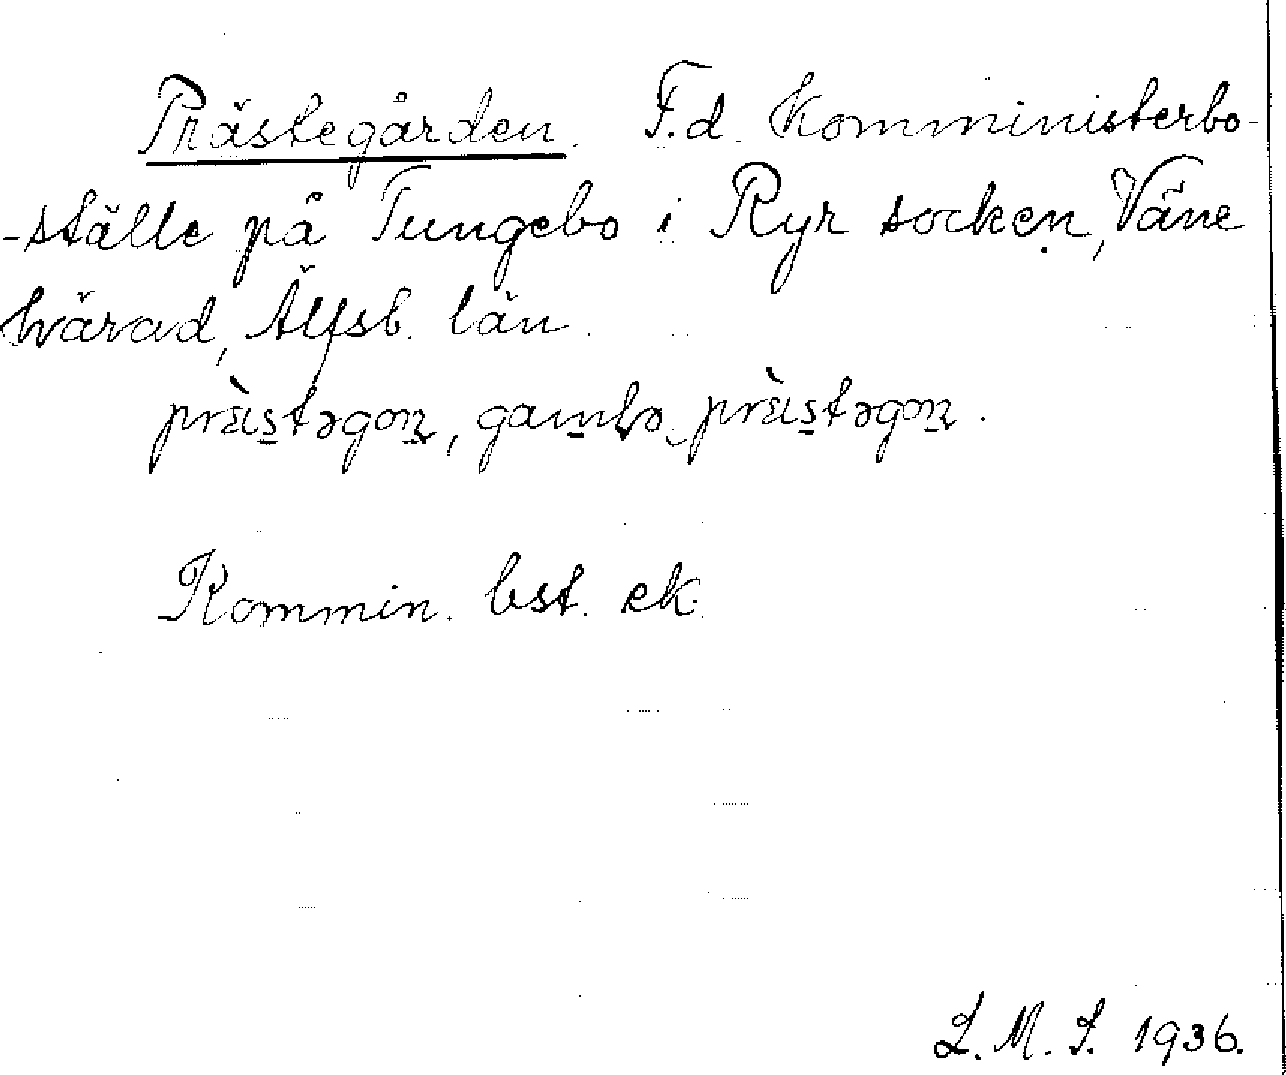 Prästegården. F.d. Komministerbo-
-ställe på Tungebo i Ryr socken, Väne
härad, Älfsb. län.
prὲıs̲təgoṉ, gam̲lə prὲıs̲təgoṉ.
Kommin. bst. ek.
L. M. S. 1936.